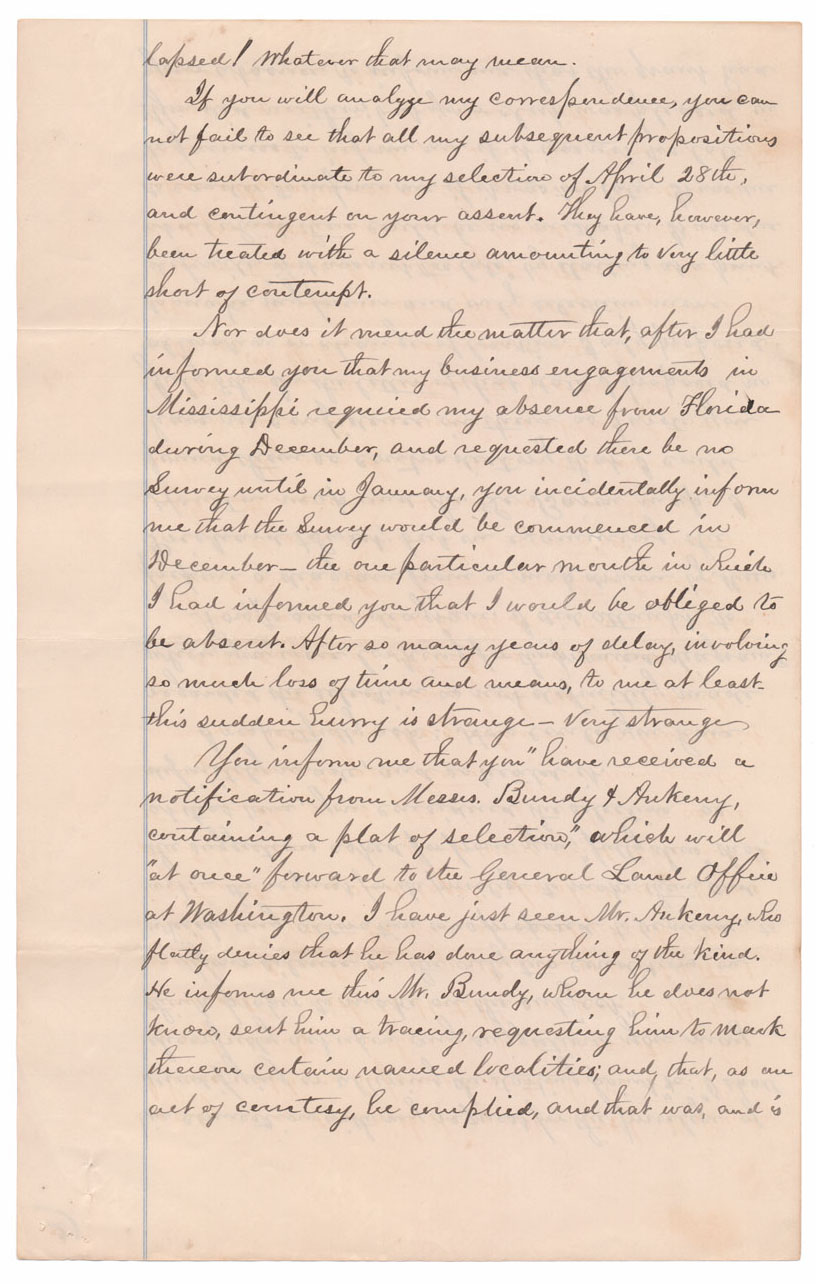 lapsed! Whatever that may mean.
If you will analyze my correspondence, you can
not fail to see that all my subsequent propositions
were subordinate to my selection of April 28th,
and contingent on your assent. They have, however,
been treated with a silence amounting to very little
short of contempt.
Nor does it mend the matter that, after I had
informed you that my business engagements in
Mississippi required my absence from Florida
during December, and requested there be no
Survey until in January, you incidentally inform
me that the Survey would be commenced in
December — the one particular month in which
I had informed you that I would be obliged to
be absent. After so many years of delay, involving
so much loss of time and means, to me at least-
this sudden hurry is strange — very strange
You inform me that you "have received a
notification from Messrs. Bundy & Ankeny,
containing a plat of selection," which will
"at once" forward to the General Land Office
at Washington. I have just seen Mr. Ankeny, who
flatly denies that he has done anything of the kind.
He informs me this Mr. Bundy, whom he does not
know, sent him a tracing, requesting him to mark
thereon certain named localities; and, that, as an
act of courtesy, he complied, and that was, and is